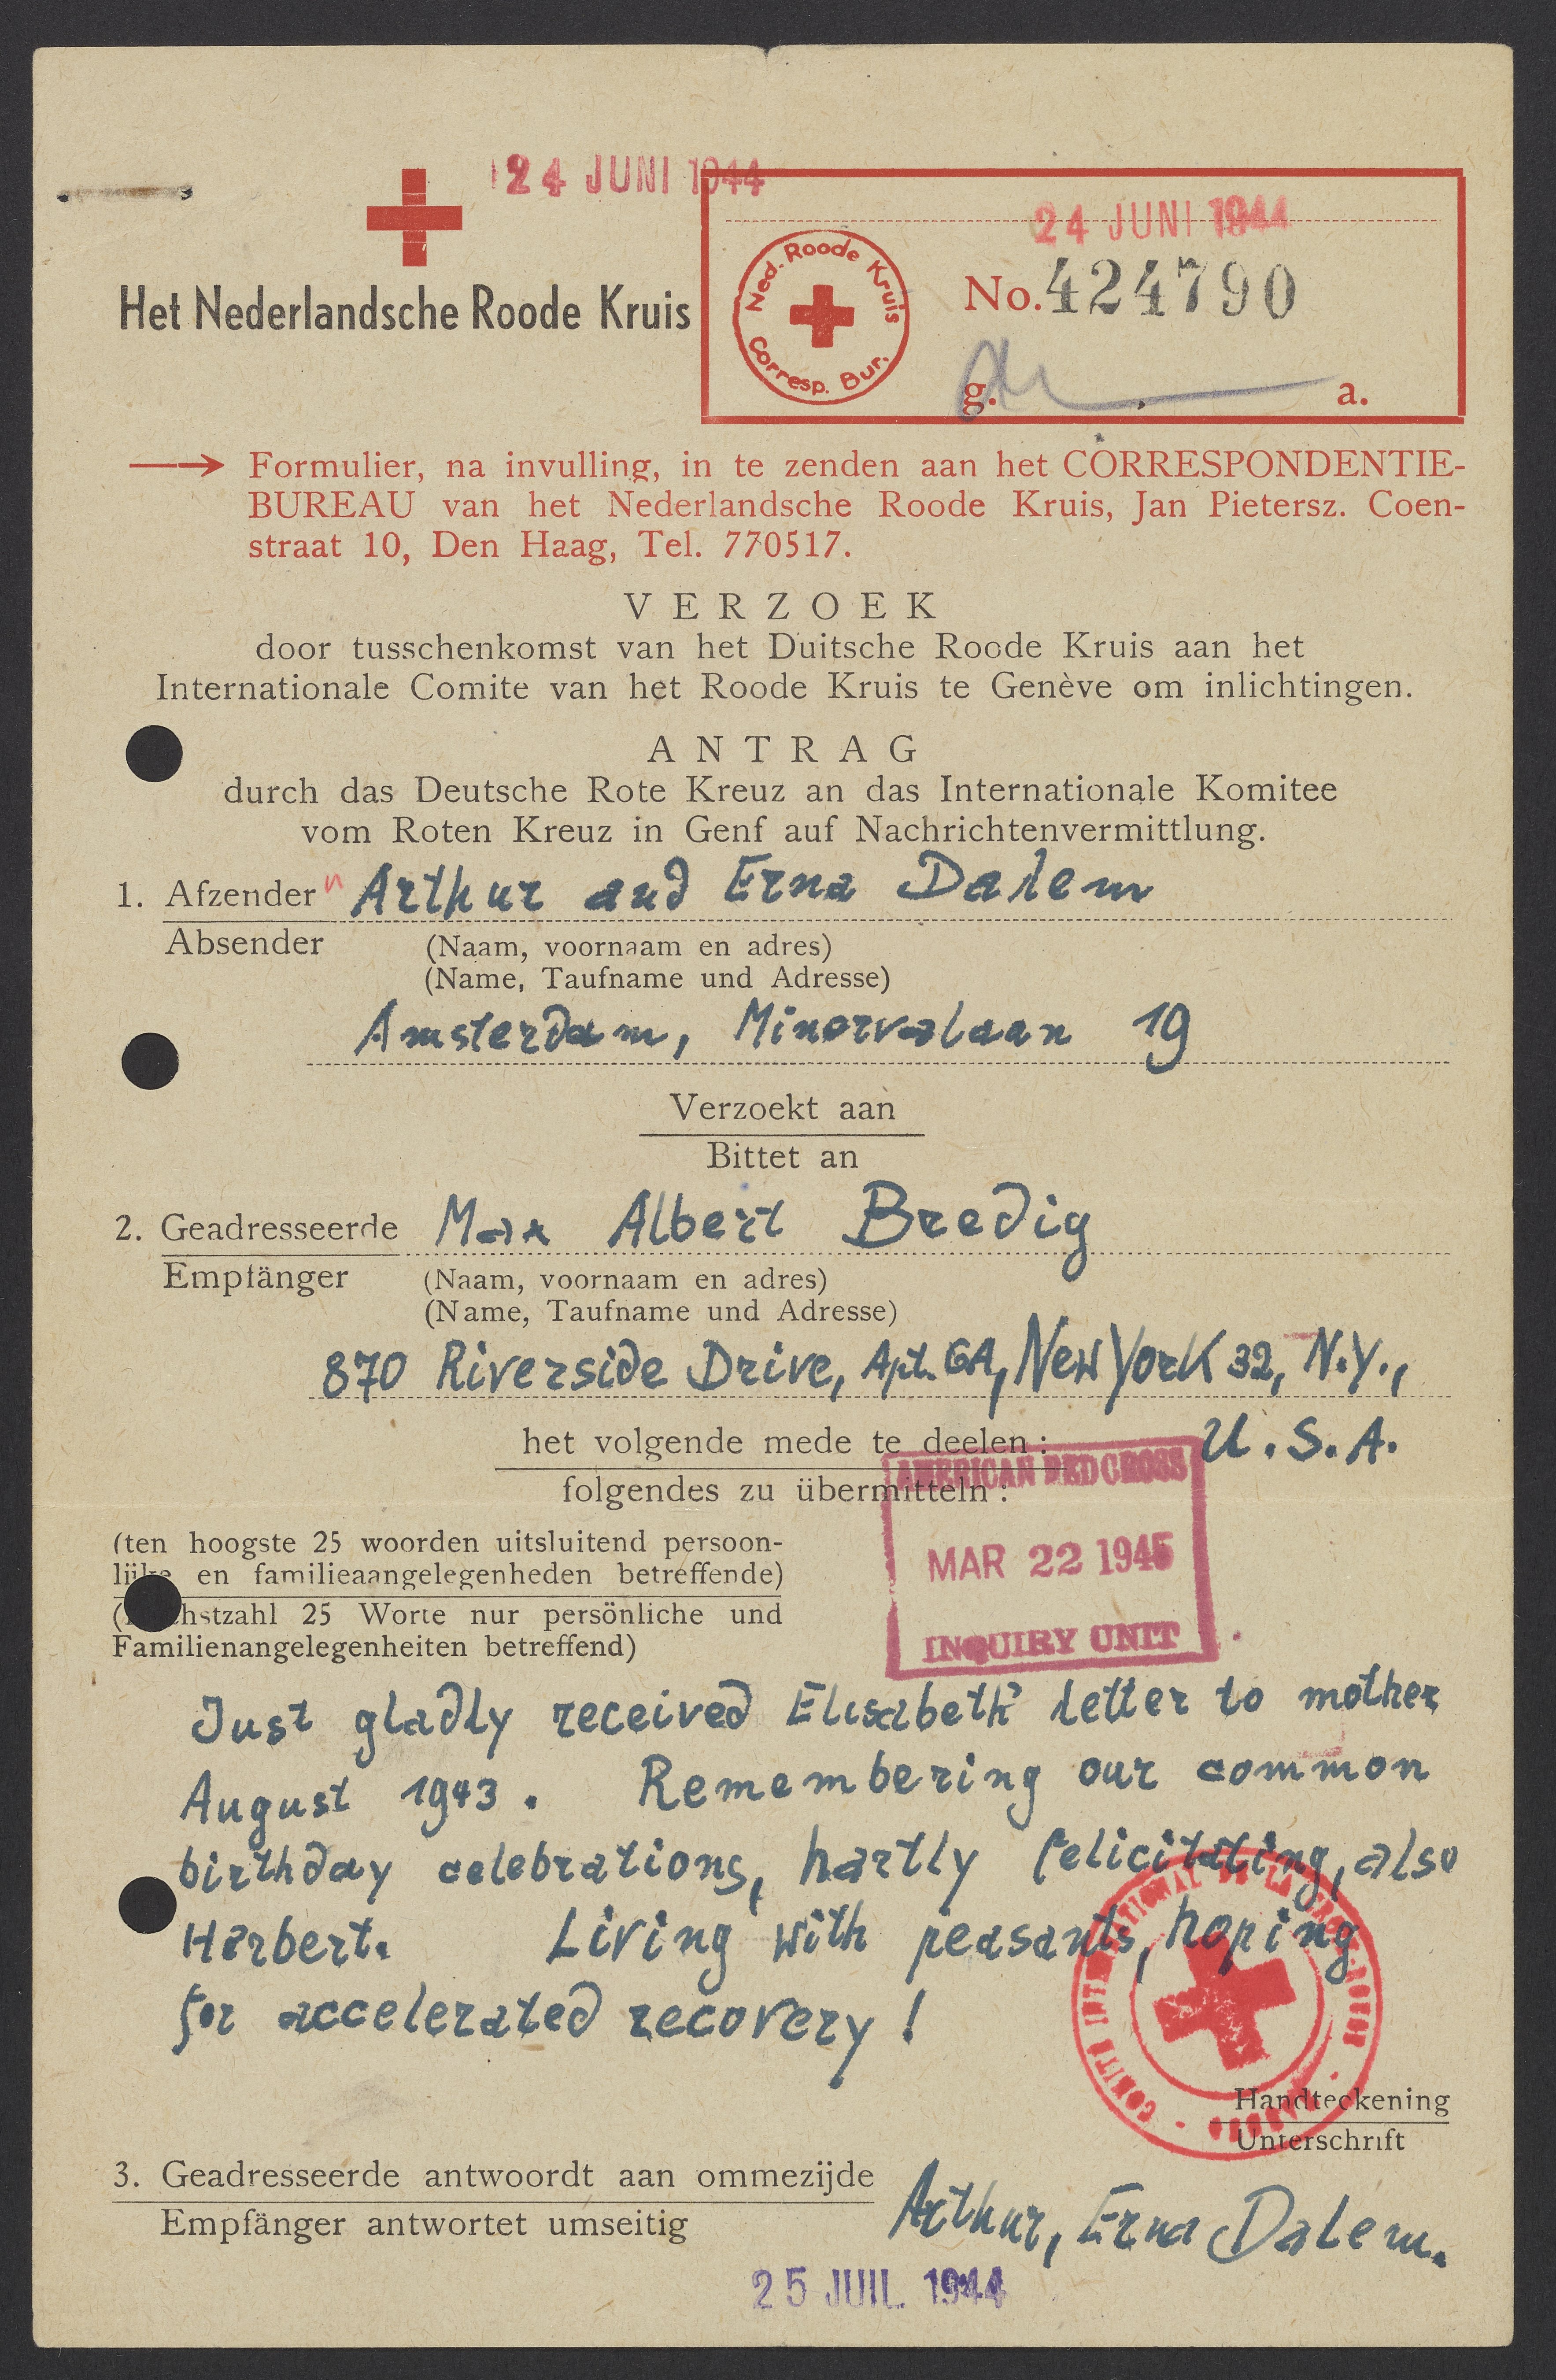 24 JUNI 1944
24 JUNI 1944
Het Nederlandsche Roode Kruis
Ned. Roode Kruis
Corresp. Bur.
No. 424790
g. a.
Formulier, na invulling, in te zenden aan het CORRESPONDENTIE-
BUREAU van het Nederlandsche Roode Kruis, Jan Pietersz. Coen-
straat 10, Den Haag, Tel. 770517.
VERZOEK
door tusschenkomst van het Duitsche Roode Kruis aan het
Internationale Comite van het Roode Kruis te Genève om inlichtingen.
ANTRAG
durch das Deutsche Rote Kreuz an das Internationale Komitee
vom Roten Kreuz in Genf auf Nachrichtenvermittlung.
1. Afzender Arthur and Erna Dalem
Absender (Naam, voornaam en adres)
(Name, Taufname und Adresse)
Amsterdam, Minervalaan 19
Verzoekt aan
Bittet an
2. Geadresseerde Max Albert Bredig
Empfänger (Naam, voornaam en adres)
(Name, Taufname und Adresse)
870 Riverside Drive, Apt. 6A, New York 32, N.Y.,
het volgende mede te deelen : U.S.A.
folgendes zu übermitteln :
AMERICAN RED CROSS
MAR 22 1945
INQUIRY UNIT
(ten hoogste 25 woorden uitsluitend persoon-
lijke en familieaangelegenheden betreffende)
hstzahl 25 Worte nur persönliche und
Familienangelegenheiten betreffend)
Just gladly received Elisabeth' letter to mother
August 1943. Remembering our common
birthday celebrations, hartly felicitating, also
Herbert. Living with peasants, hoping
for accelerated recovery!
COMITÉ INTERNATIONAL DE LA CROIX-ROUGE
Handteekening
Unterschrift
3. Geadresseerde antwoordt aan ommezijde
Empfänger antwortet umseitig
Arthur, Erna Dalem.
25 JUIL. 1944